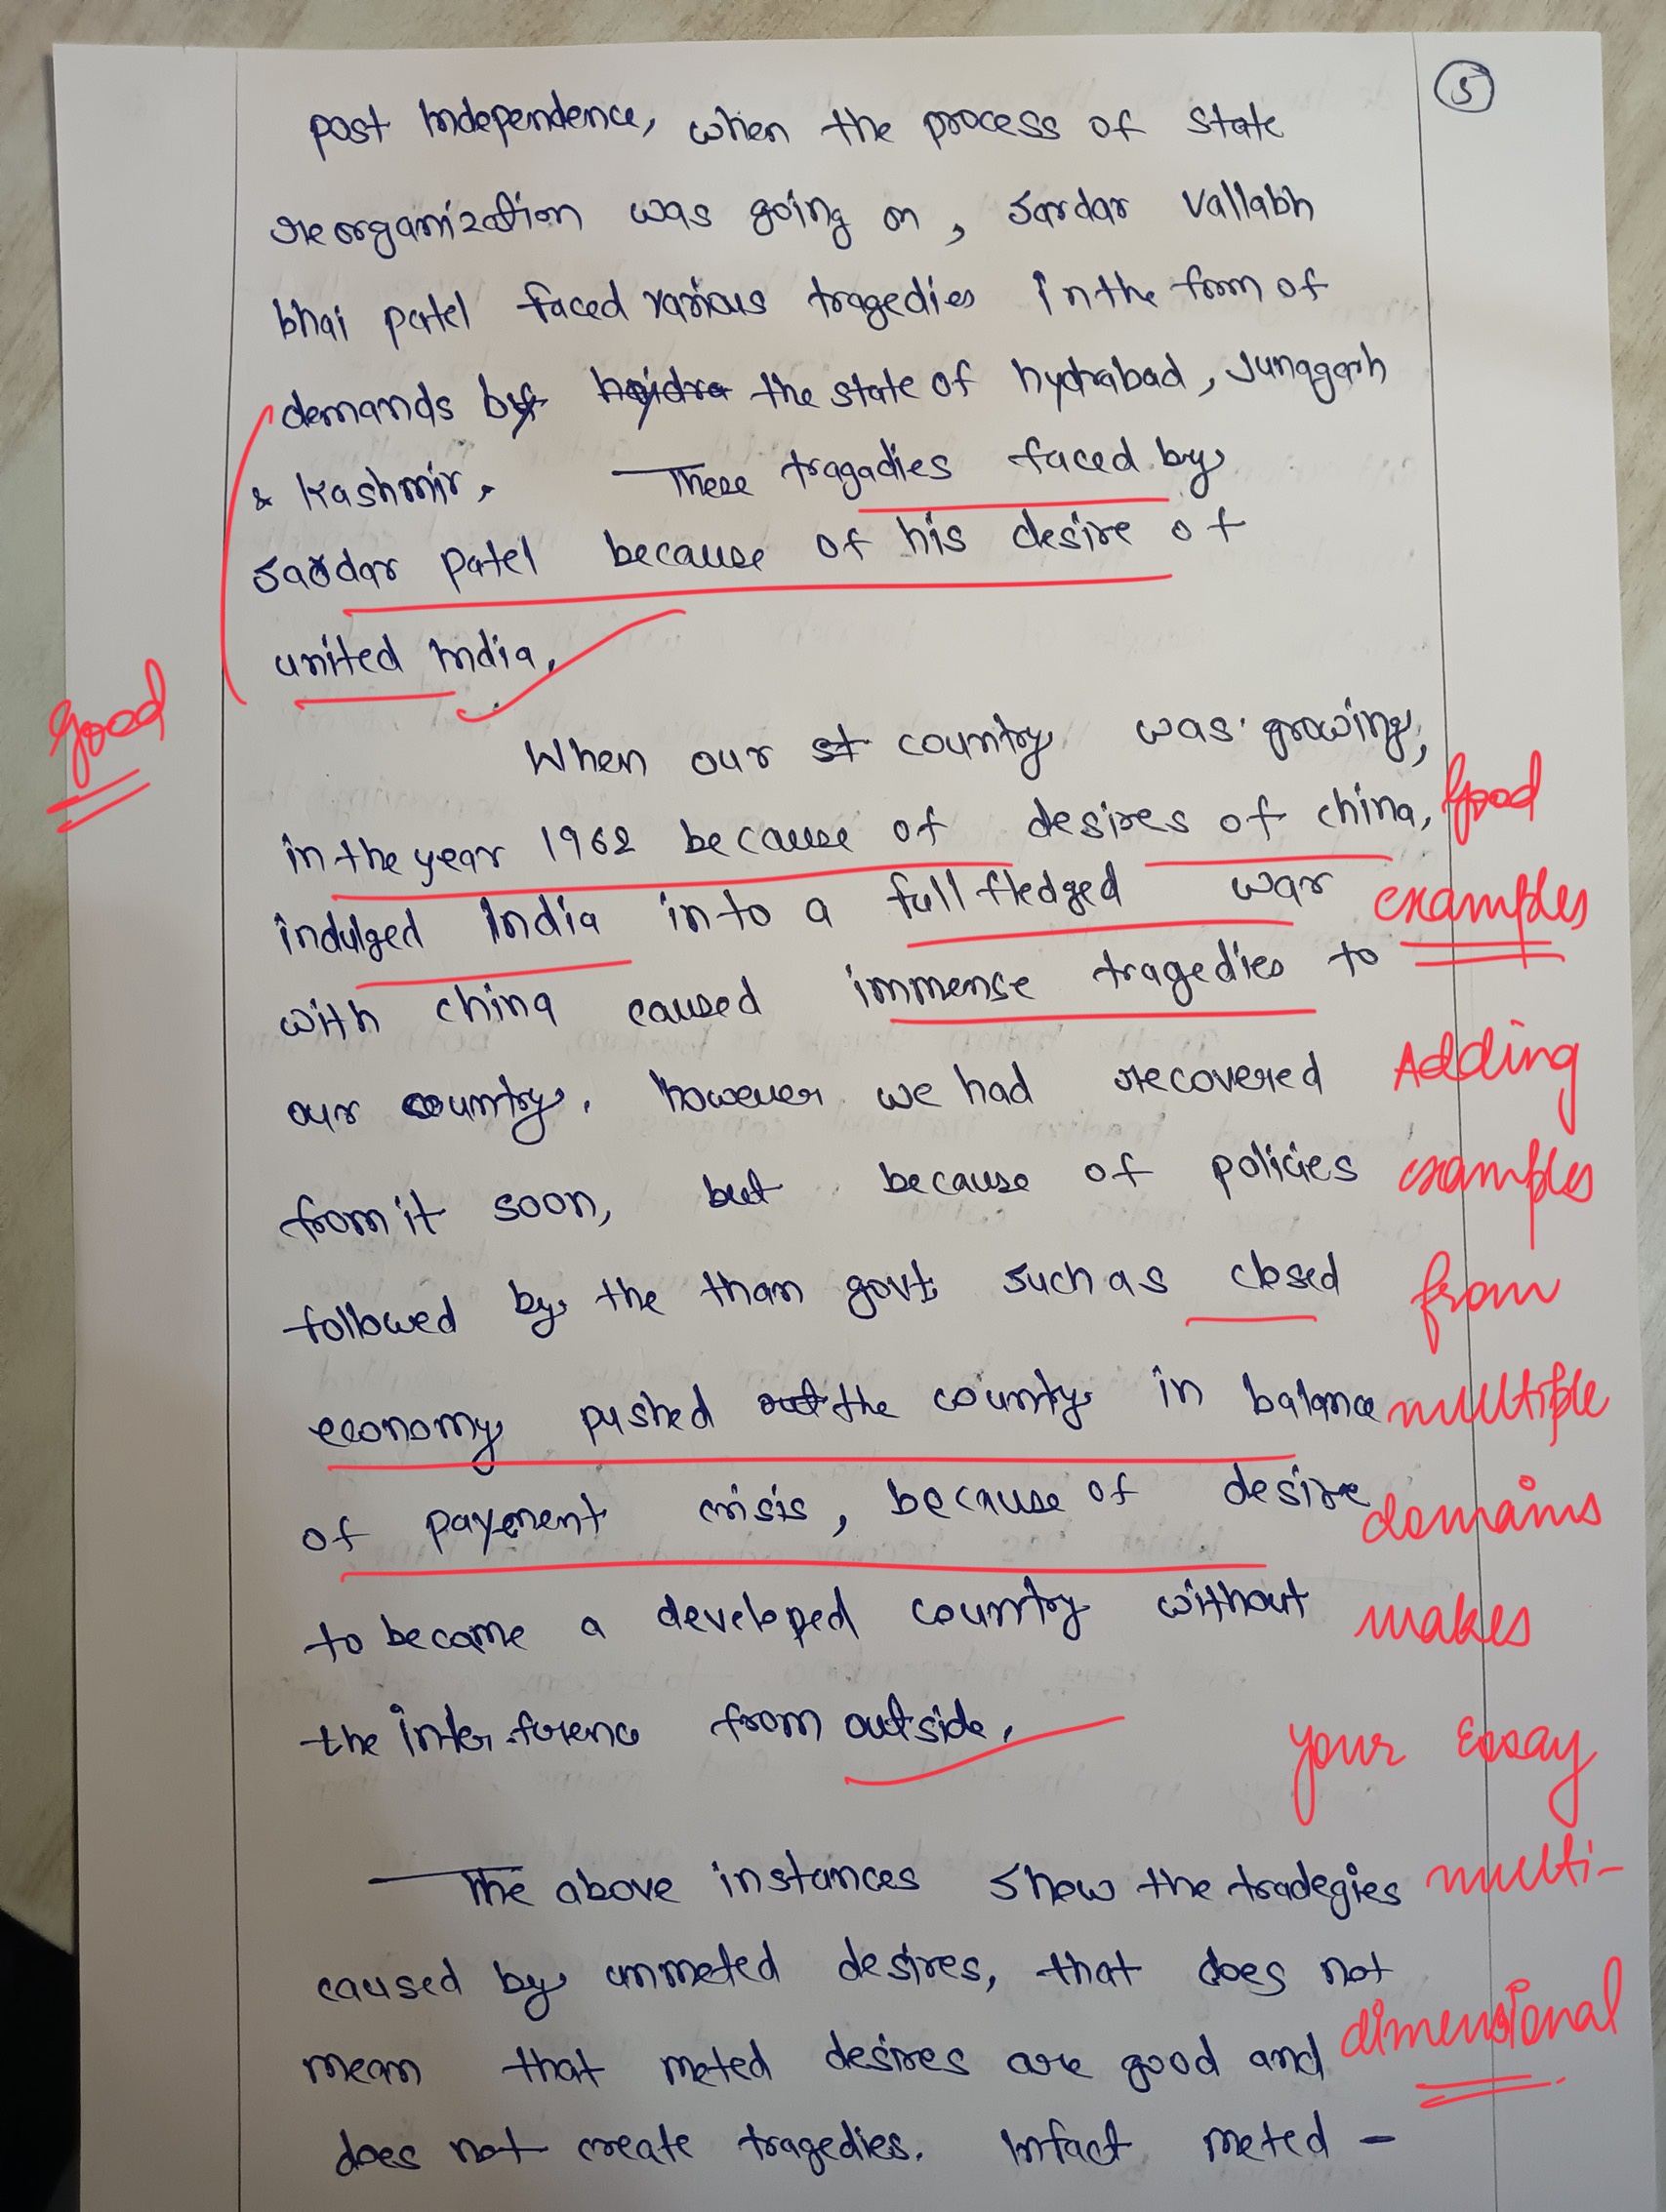 5
post Independence, when the process of state
reorganization was going on, Sardar Vallabh
bhai patel faced various tragedies in the form of
demands by the state of hydrabad, Junagarh
& Kashmir. These tragadies faced by
Sardar Patel because of his desire of
united India.
Good
When our country was growing,
in the year 1962 because of desires of china,
indulged India into a full fledged war
with china caused immense tragedies to
our country. however we had recovered
from it soon, but because of policies
followed by the than govt. such as closed
economy pushed the country in balance
of payment crisis, because of desire
to become a developed country without
the interference from outside.
The above instances show the tradegies
caused by unmeted desires, that does not
mean that meted desires are good and
does not create tragedies. Infact meted -
Good
examples
Adding
examples
from
multiple
domains
makes
your Essay
multi-
dimensional